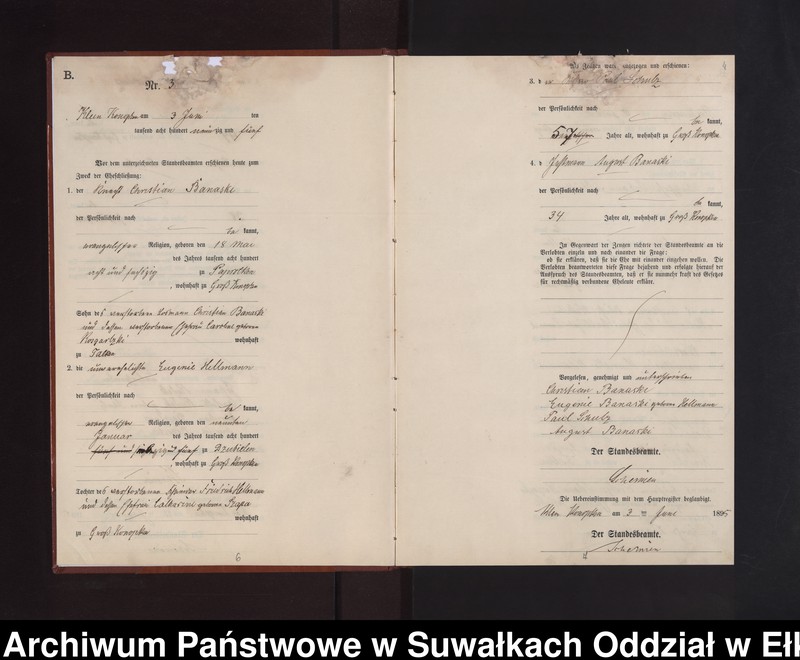 B.
Nr. 3
Klein Konopken am 3 Juni den
tausend acht hundert neunzig und fünf
Vor dem unterzeichneten Standesbeamten erschienen heute zum
Zweck der Eheschließung:
1. der Knecht Christian Banaski
der Persönlichkeit nach
kannt,
evangelischer Religion, geboren den 18 Mai
des Jahres tausend acht hundert
acht und sechzig zu
, wohnhaft zu Groß Konopken
Sohn des verstorbenen Losmann Christian Banaski
und dessen verstorbenen Ehefrau geborene
wohnhaft
zu Talken
2. die unverehelichte Eugenie Hellmann
der Persönlichkeit nach
kannt,
evangelischer Religion, geboren den neunten
Januar des Jahres tausend acht hundert
fünf zu
, wohnhaft zu Groß Konopken
Tochter des verstorbenen Friedrich Hellmann
und dessen Ehefrau Catharine geborene
wohnhaft
zu Groß Konopken
6
4
Als Zeugen waren zugezogen und erschienen:
3. d Schulz
der Persönlichkeit nach
kannt,
Jahre alt, wohnhaft zu Groß Konopken
4. d August Banaski
der Persönlichkeit nach
kannt,
34 Jahre alt, wohnhaft zu Groß Konopken
In Gegenwart der Zeugen richtete der Standesbeamte an die
Verlobten einzeln und nach einander die Frage:
ob sie erklären, daß sie die Ehe mit einander eingehen wollen. Die
Verlobten beantworteten diese Frage bejahend und erfolgte hierauf der
Ausspruch des Standesbeamten, daß er sie nunmehr kraft des Gesetzes
für rechtmäßig verbundene Eheleute erkläre.
Vorgelesen, genehmigt und unterschrieben
Christian Banaski
Eugenie Banaski geborene Hellmann
Paul Schulz
August Banaski
Der Standesbeamte.
Die Uebereinstimmung mit dem Hauptregister beglaubigt.
Klein Konopken am 3 ten Juni 1895
Der Standesbeamte.
Archiwum Państwowe w Suwałkach Oddział w Ełk